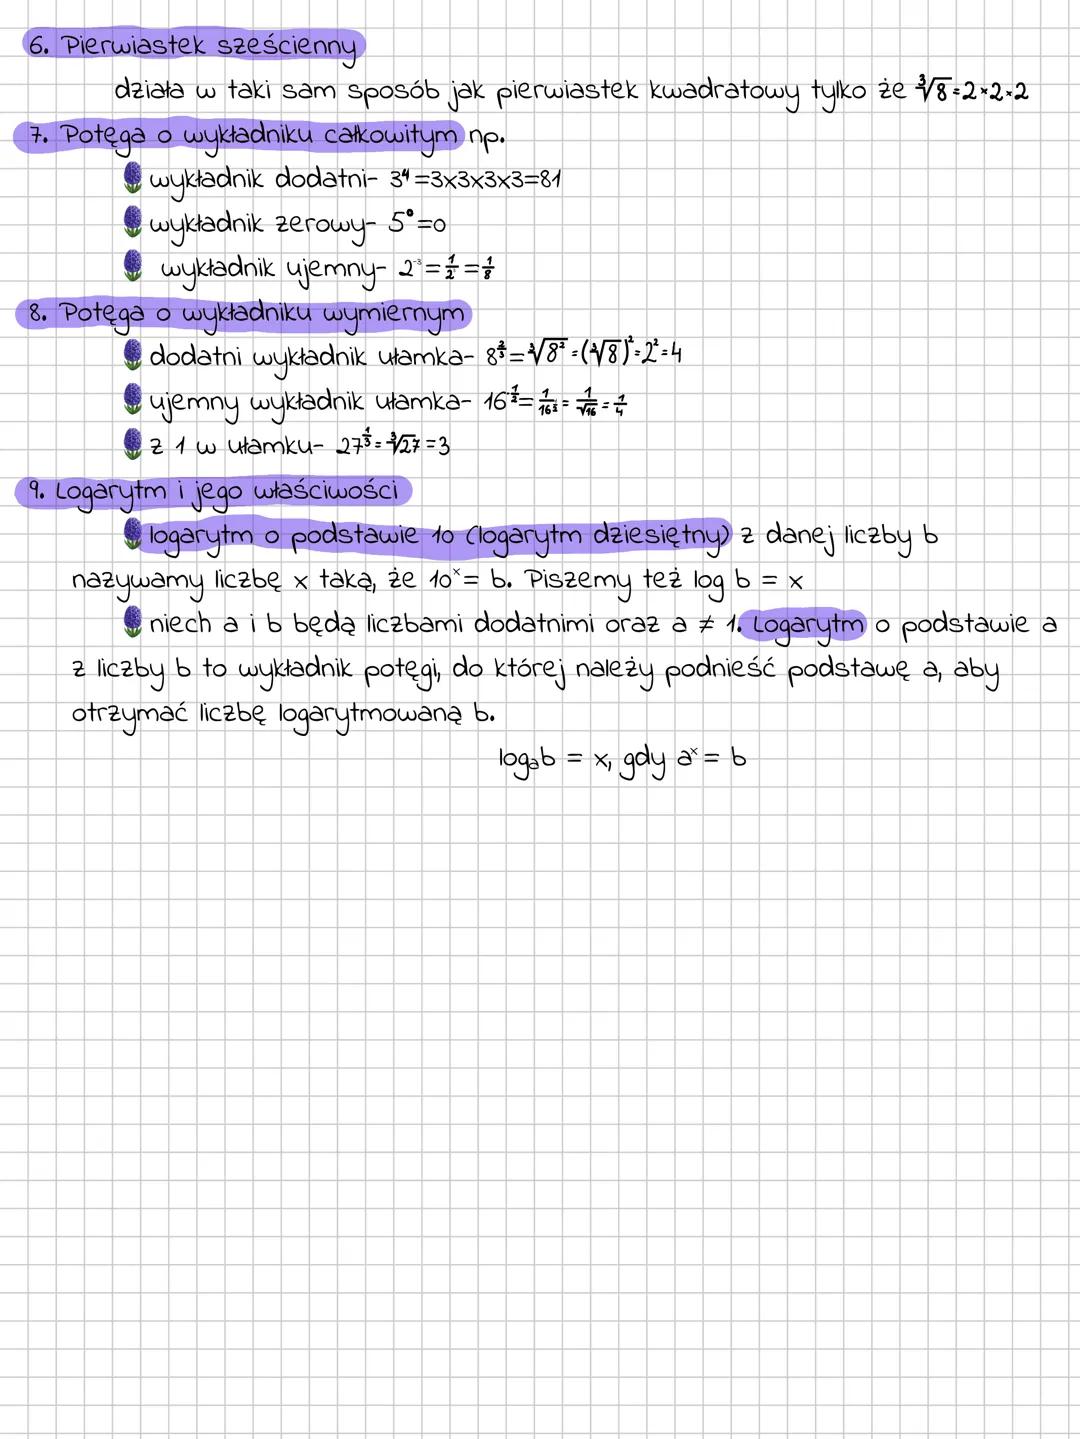 6. Pierwiastek sześcienny
działa w taki sam sposób jak pierwiastek kwadratowy tylko że ∛8=2×2×2
7. Potęga o wykładniku całkowitym np.
wykładnik dodatni- 3⁴=3x3x3x3=81
wykładnik zerowy- 5⁰=0
wykładnik ujemny- 2⁻³=1/2=1/8
8. Potęga o wykładniku wymiernym
dodatni wykładnik ułamka- 8^(2/3)=∛8²=(∛8)²=2²=4
ujemny wykładnik ułamka- 16^(-1/2)=1/16^(1/2)=1/√16=1/4
z 1 w ułamku- 27^(1/3)=∛27=3
9. Logarytm i jego właściwości
logarytm o podstawie 10 (logarytm dziesiętny) z danej liczby b
nazywamy liczbę x taką, że 10ˣ= b. Piszemy też log b = x
niech a i b będą liczbami dodatnimi oraz a ≠ 1. Logarytm o podstawie a
z liczby b to wykładnik potęgi, do której należy podnieść podstawę a, aby
otrzymać liczbę logarytmowaną b.
logₐb = x, gdy aˣ= b